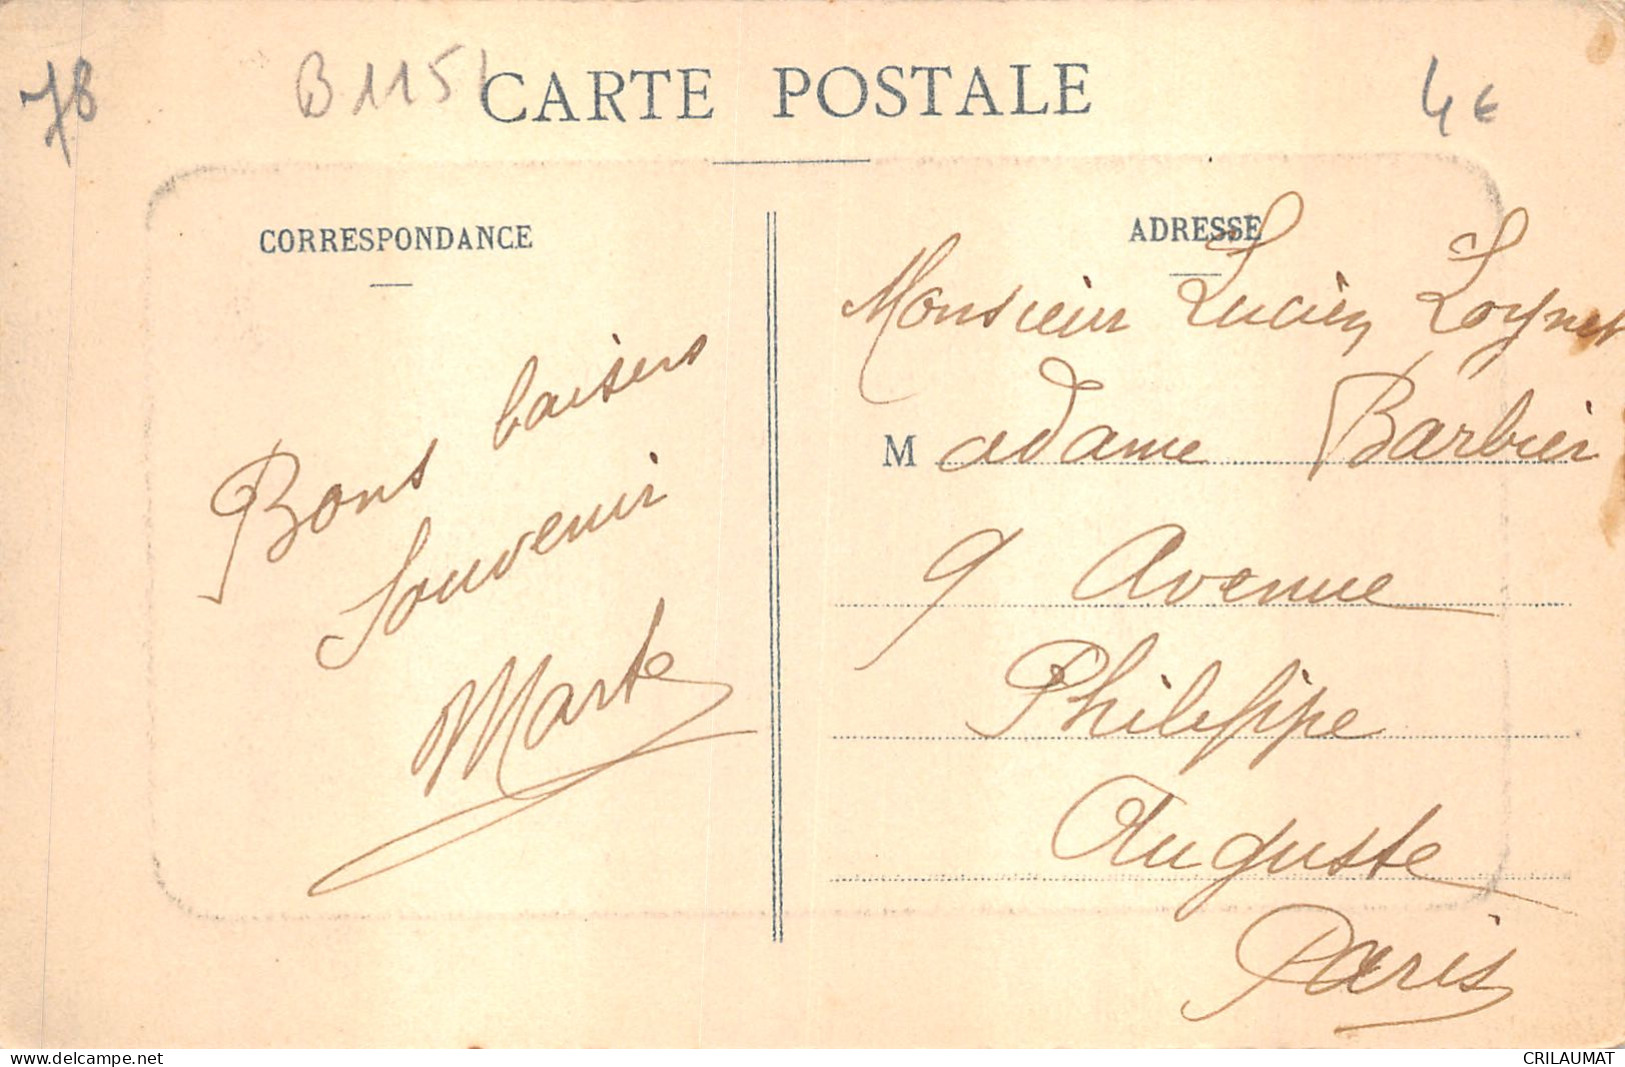 78
B1151
CARTE POSTALE
4€
CORRESPONDANCE
Bons baisers
Souvenir
Marte
ADRESSE
Monsieur Lucien Loynet
Madame Barbier
9 Avenue
Philippe
Auguste
Paris
www.delcampe.net
CRILAUMAT